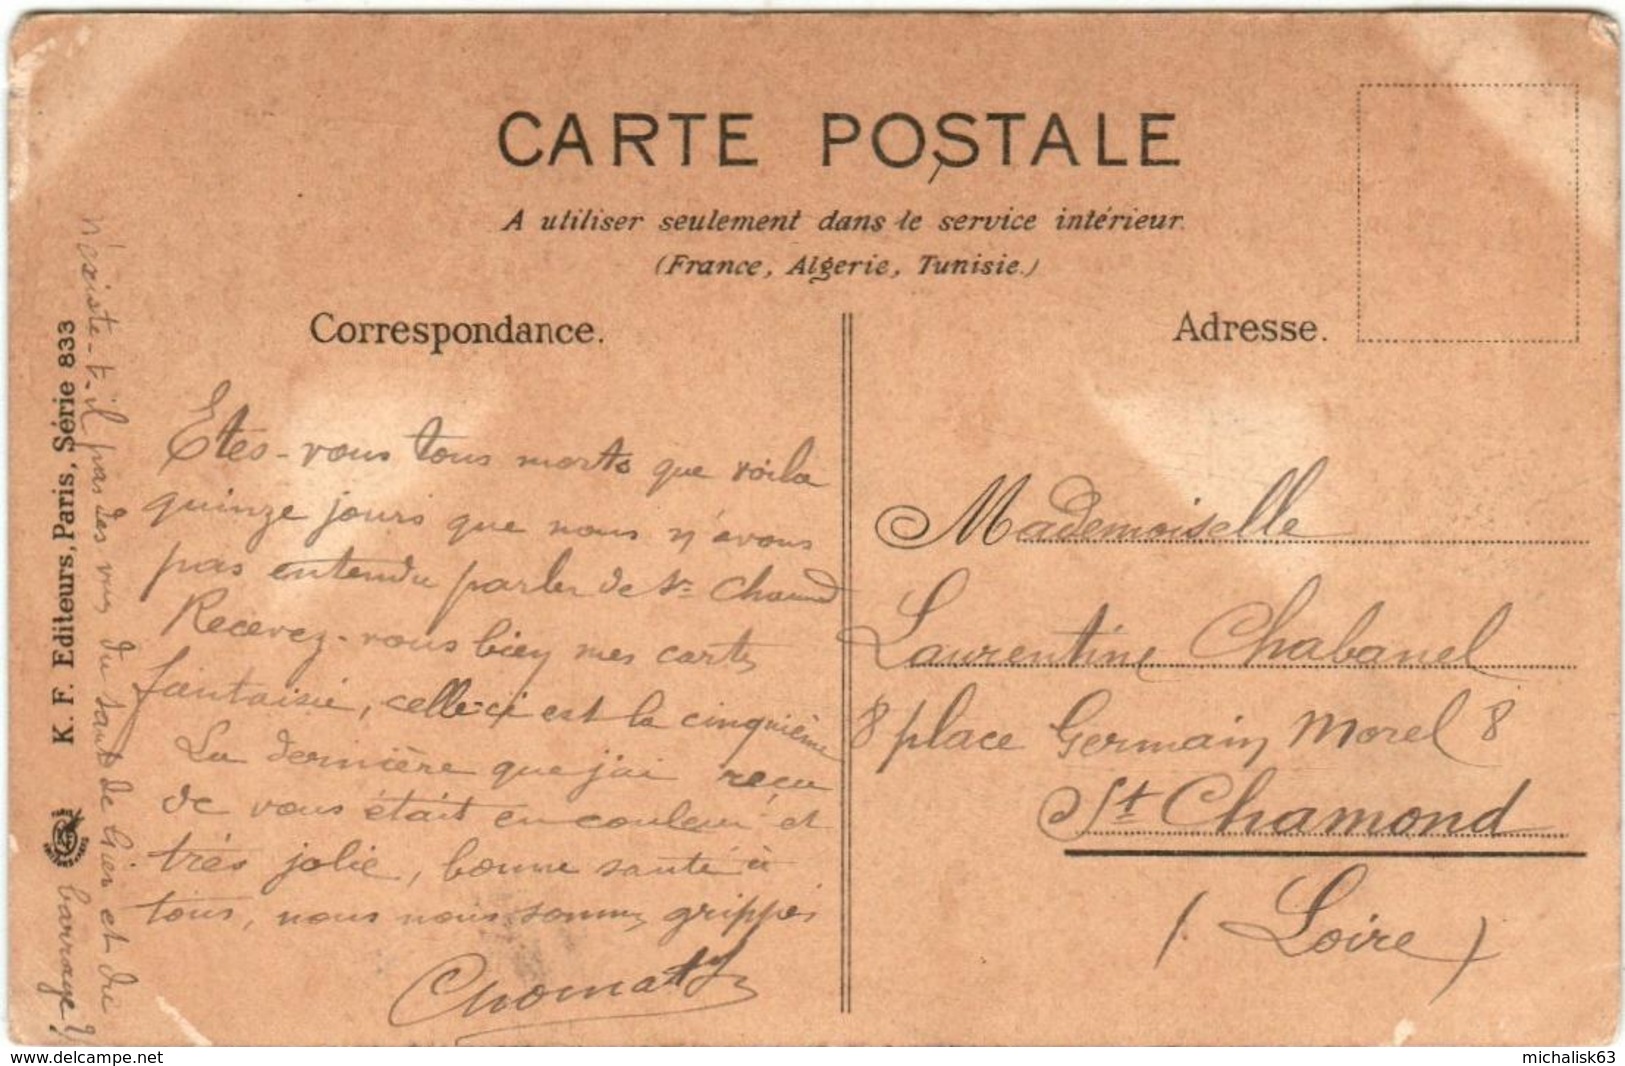 CARTE POSTALE
A utiliser seulement dans le service intérieur.
(France, Algerie, Tunisie.)
Correspondance.
Adresse.
Etes-vous tous morts que voila
quinze jours que nous n'avons
pas entendu parler de St Chamond
Recevez-vous bien mes cartes
fantaisie, celle-ci est la cinquième
La dernière que j'ai reçu
de vous était en couleur et
très jolie, bonne santé à
tous, nous nous sommes grippés
Chomat
n'existe-t-il pas des vues du saut de Gier et du
barrage ?
K. F. Editeurs, Paris, Série 833
Mademoiselle
Laurentine Chabanel
8 place Germain Morel 8
St Chamond
(Loire)
www.delcampe.net
michalisk63